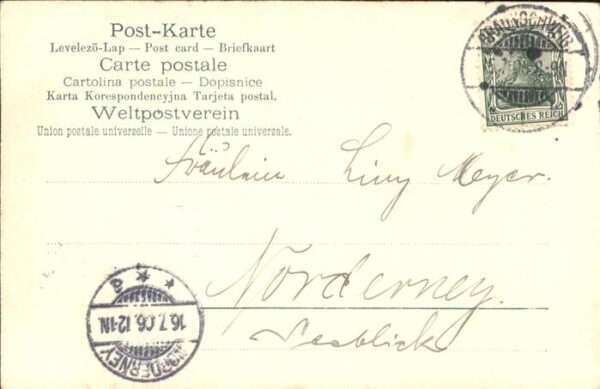 Post-Karte
Levelező-Lap — Post card — Briefkaart
Carte postale
Cartolina postale — Dopisnice
Karta Korespondencyjna Tarjeta postal.
Weltpostverein
Union postale universelle — Unione postale universale.
BRAUNSCHWEIG
DEUTSCHES REICH
Fräulein Liny Meyer.
Norderney.
Seeblick
16.7.06.12-1N.
NORDERNEY